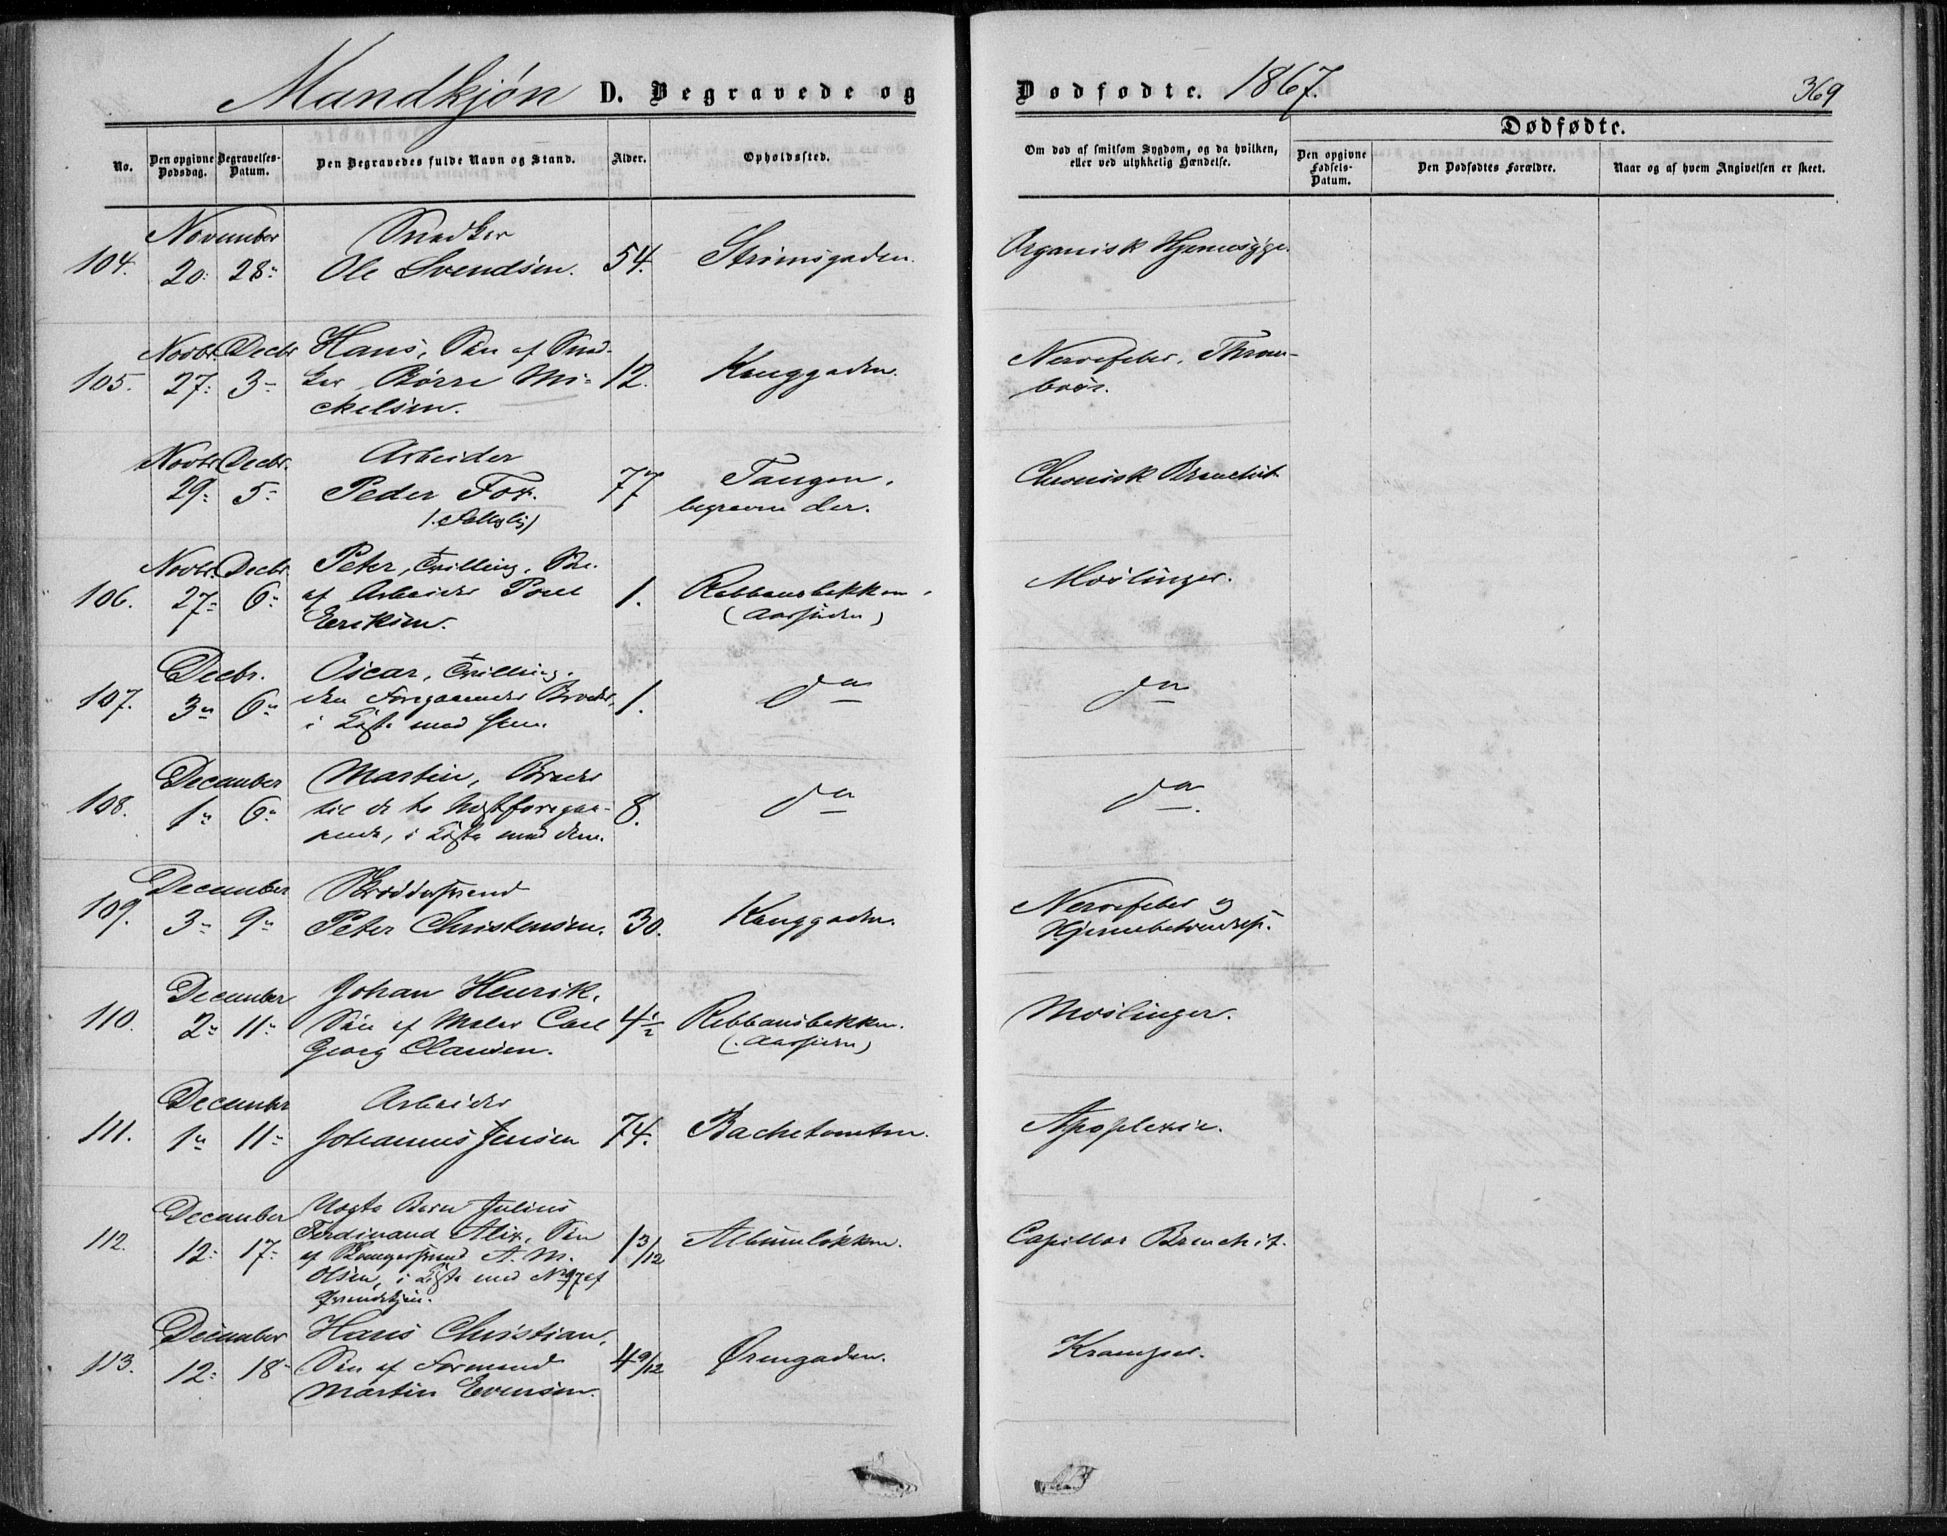 Mandkjøn D. Begravede og
Dødfødte. 1867.
369
No.
Den opgivne Dødsdag.
Begravelses-Datum.
Den Begravedes fulde Navn og Stand.
Alder.
Opholdssted.
Om død af smitsom Sygdom, og da hvilken,
eller ved ulykkelig Hændelse.
Dødfødte.
Den opgivne Fødsels-Datum.
Den Dødfødtes Forældre.
Naar og af hvem Angivelsen er skeet.
November Snedker
104. 20. 28. Ole Svendsen. 54. Strømsgaden. Organisk Hjernesyge.
Novbr. Decbr. Hans, Søn af Sned-
105. 27. 3. ker Børre Mi- 12. Konggaden. Nervefeber, Throm-
ckelsen. bose.
Novbr. Decbr. Arbeider
29. 5. Peder Fox. 77 Tangen, Chronisk Bronchit
begraven der.
Novbr. Decbr. Peter, Tvilling, Søn
106. 27. 6. af Arbeider Poul 1. Røbbansbekken, Mæslinger.
Eriksen. (Aassiden)
Decbr. Oscar, Tvilling,
107. 3. 6. den Foregaaendes Broder, 1. do do
i Kiste med ham.
December Martin, Broder
108. 1. 6. til de to Næstforegaa- 8. do do.
ende, i Kiste med dem.
December Skræddersvend
109. 3. 9. Peter Christensen. 30. Konggaden. Nervefeber og
Hjernebetændelse.
December Johan Henrik,
110. 2. 11. Søn af Maler Carl 4½ Røbbansbekken. Mæslinger.
Georg Clausen. (Aassiden)
December Arbeider
111. 1. 11. Johannes Jensen 74. Bachetomten. Apoplexie.
December Uægte Barn Julius
Ferdinand Alix, Søn
112. 12. 17. af A. M. 1 3/12 Albumløkken. Capillar Bronchit.
Olsen, i Kiste med No 97 af
Qvindekjøn.
December Hans Christian,
113. 12. 18. Søn af Formand 4 9/12 Ørengaden. Kramper.
Martin Evensen.